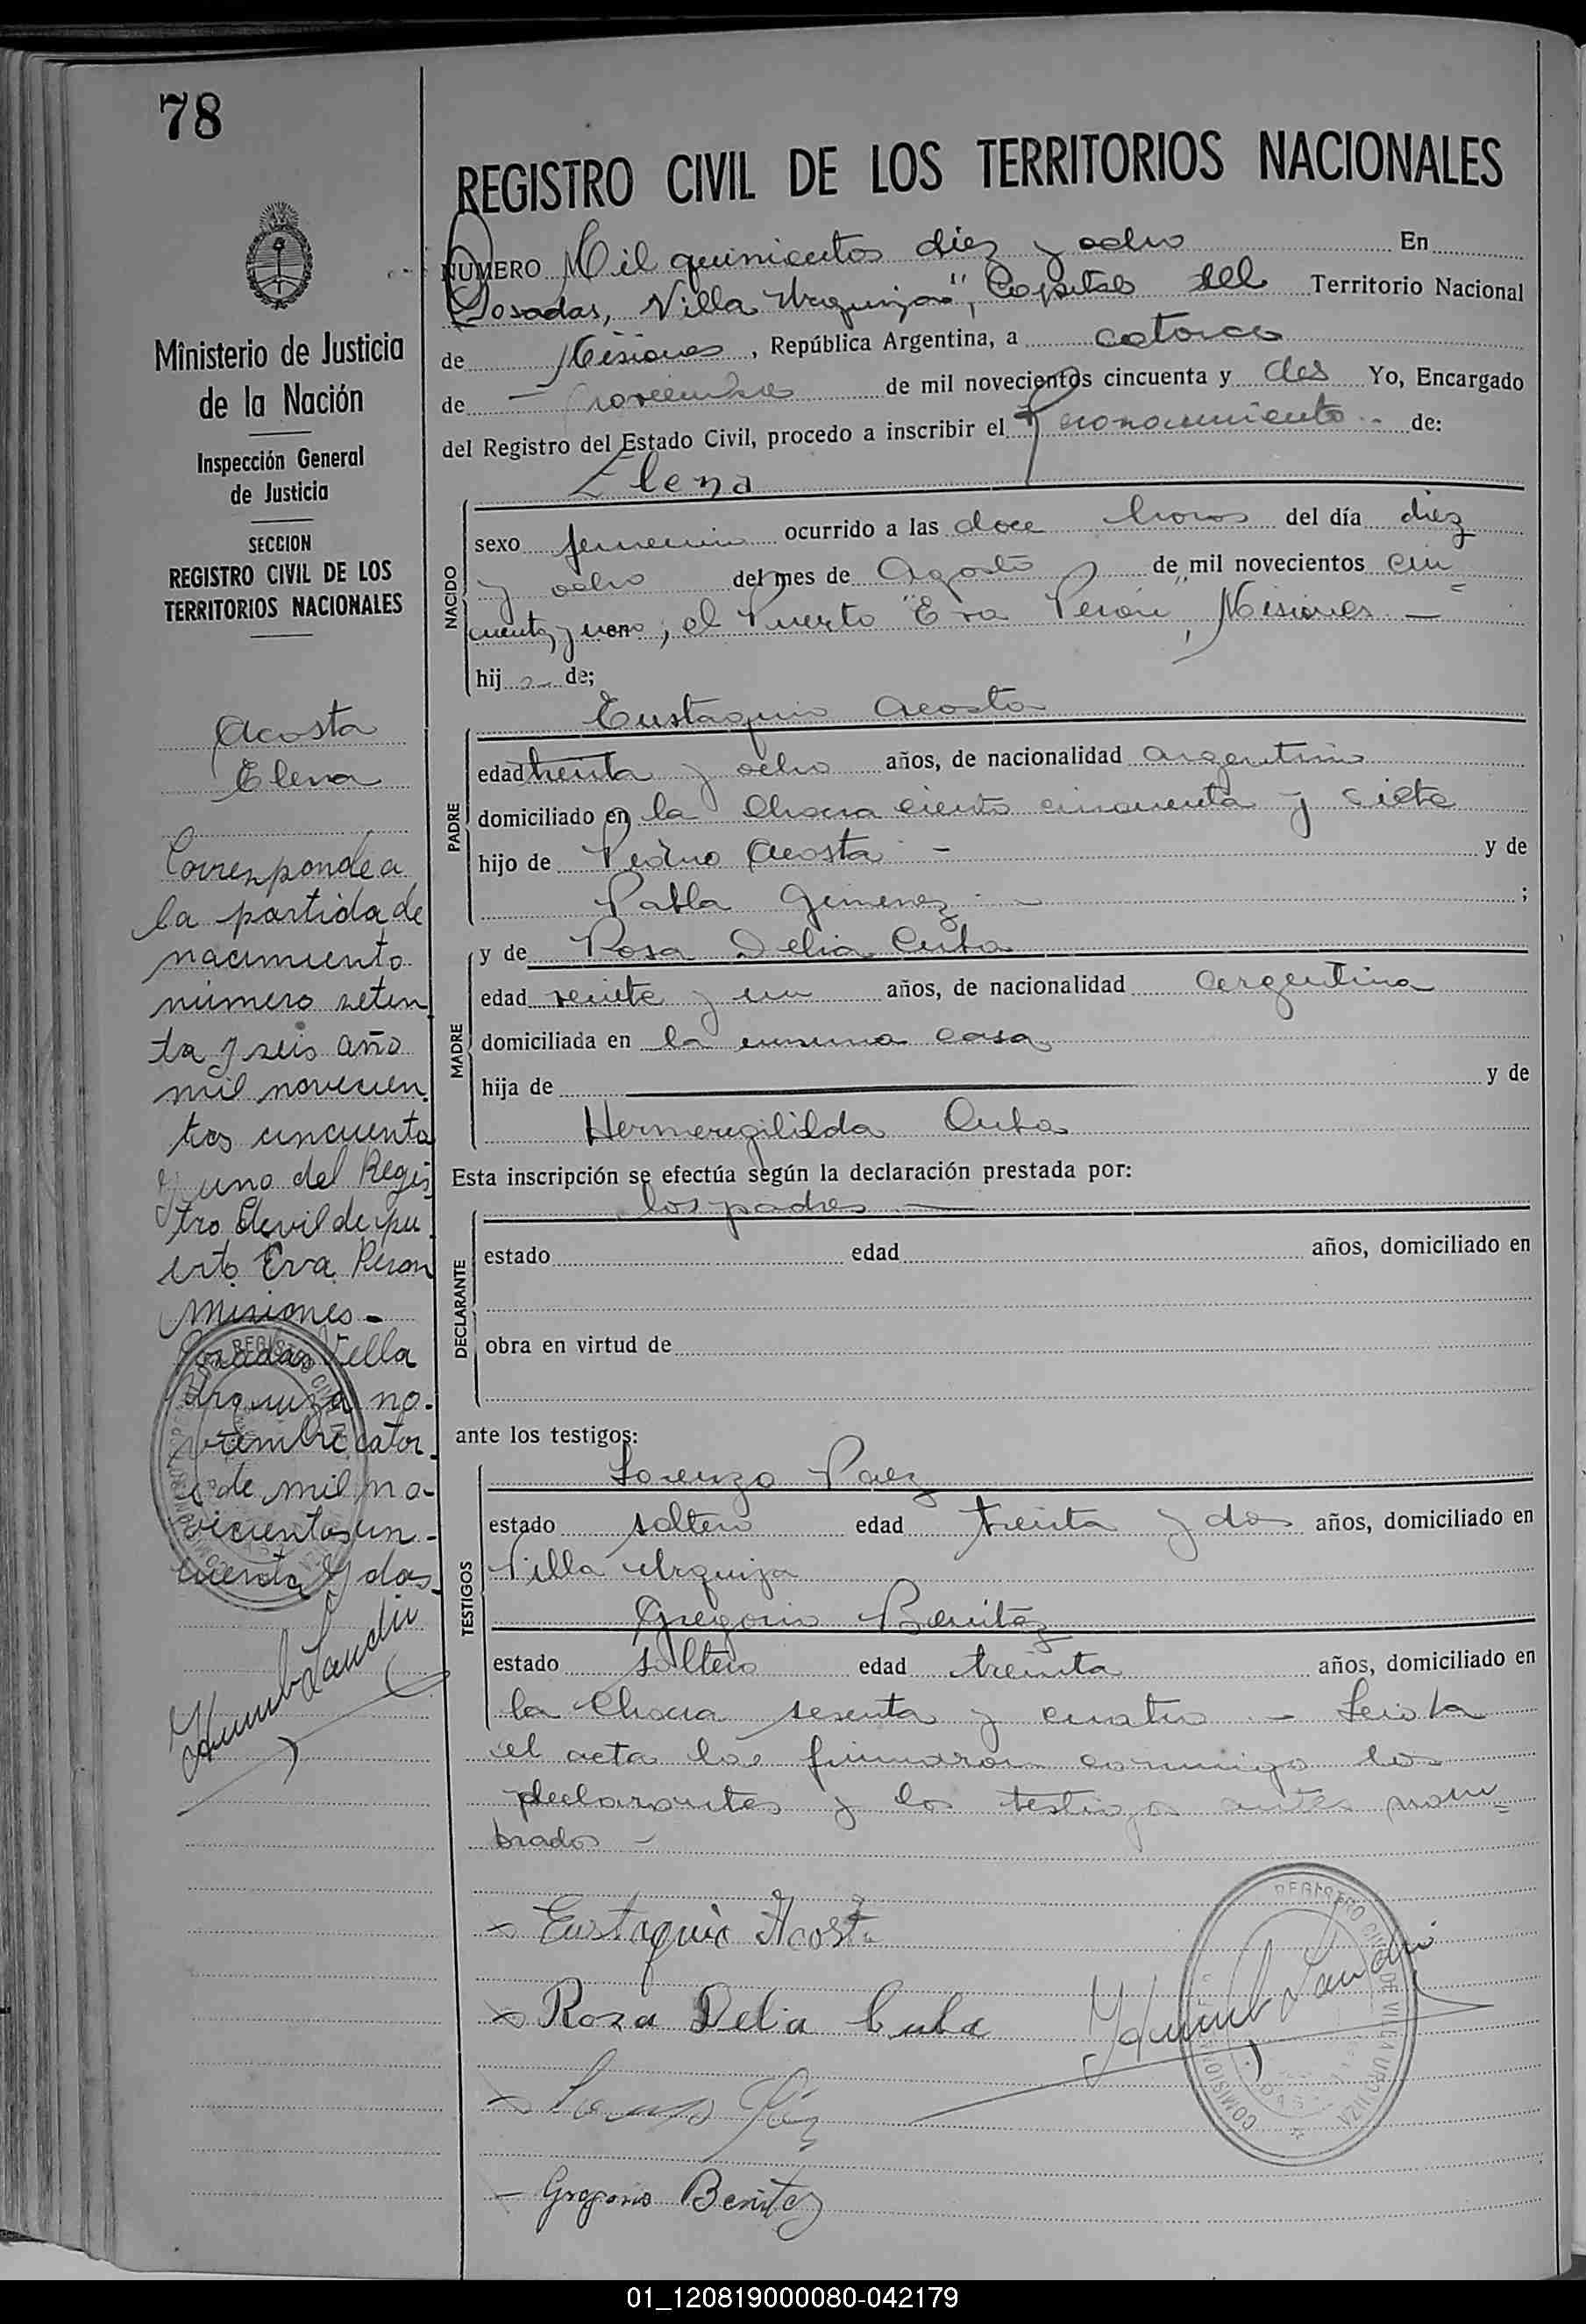 78
REGISTRO CIVIL DE LOS TERRITORIOS NACIONALES
NUMERO Mil quinientos diez y ocho En
Posadas, Villa Urquiza", Capital del Territorio Nacional
de Misiones, República Argentina, a catorce
de noviembre de mil novecientos cincuenta y dos Yo, Encargado
del Registro del Estado Civil, procedo a inscribir el Reconocimiento - de:
Elena
NACIDO
sexo femenino ocurrido a las doce horas del día diez
y ocho del mes de Agosto de mil novecientos cin=
cuenta y uno, el Puerto "Eva Perón", Misiones -
hij a de;
Eustaquio Acosta
PADRE
edad treinta y ocho años, de nacionalidad argentino
domiciliado en la Chacra ciento cincuenta y siete
hijo de Pedro Acosta - y de
Pabla Gimenez - ;
MADRE
y de Rosa Delia Cuba
edad veinte y un años, de nacionalidad argentina
domiciliada en la misma casa
hija de y de
Hermeregililda Cuba
Esta inscripción se efectúa según la declaración prestada por:
los padres
DECLARANTE
estado edad años, domiciliado en
obra en virtud de
ante los testigos:
TESTIGOS
Lorenzo Paez
estado soltero edad treinta y dos años, domiciliado en
Villa Urquiza
Gregorio Benitez
estado soltero edad treinta años, domiciliado en
la Chacra sesenta y cuatro - Leida
el acta la firmaron conmigo los
declarantes y los testigos antes nom=
brados -
Eustaquio Acosta
Rosa Delia Cuba
Gregorio Benitez
Humb Landri
REGISTRO CIVIL DE VILLA URQUIZA
MISIONES
Ministerio de Justicia
de la Nación
Inspección General
de Justicia
SECCION
REGISTRO CIVIL DE LOS
TERRITORIOS NACIONALES
Acosta
Elena
Corresponde a
la partida de
nacimiento
número seten
ta y seis año
mil novecien
tos cincuenta
y uno del Regis
tro Civil de pu
erto Eva Peron
Misiones -
Posadas Villa
Urquiza no-
viembre cator
ce de mil no-
vecientos cin-
cuenta y dos
Humb Landri
01_120819000080-042179